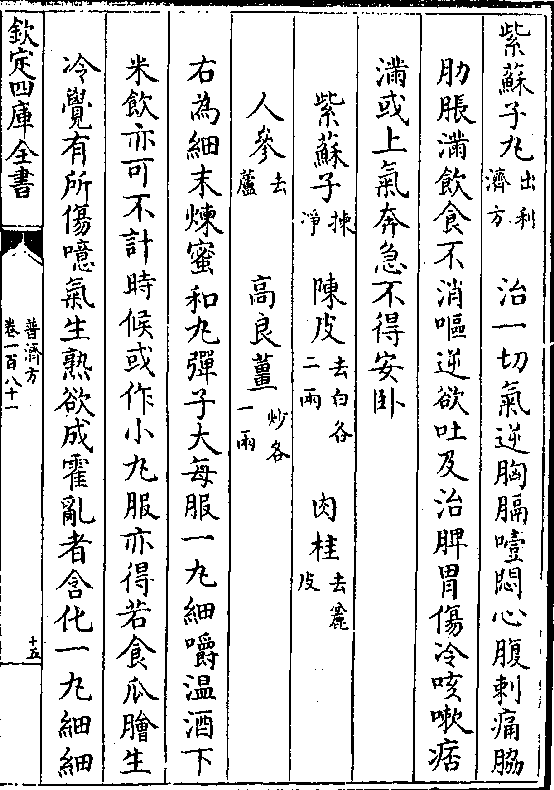 紫蘇子丸出利濟方　治一切氣逆胸膈噎悶心腹刺痛脇
肋脹滿飲食不消嘔逆欲吐及治脾胃傷冷咳嗽痞
滿或上氣奔急不得安卧
紫蘇子揀淨　陳皮去白各二兩　肉桂去麄皮
人參去蘆　高良薑炒各一兩
右為細末煉蜜和丸彈子大每服一丸細嚼温酒下
米飲亦可不計時候或作小丸服亦得若食瓜膾生
冷覺有所傷噫氣生熟欲成霍亂者含化一丸細細
欽定四庫全書
普濟方
卷一百八十一
十五